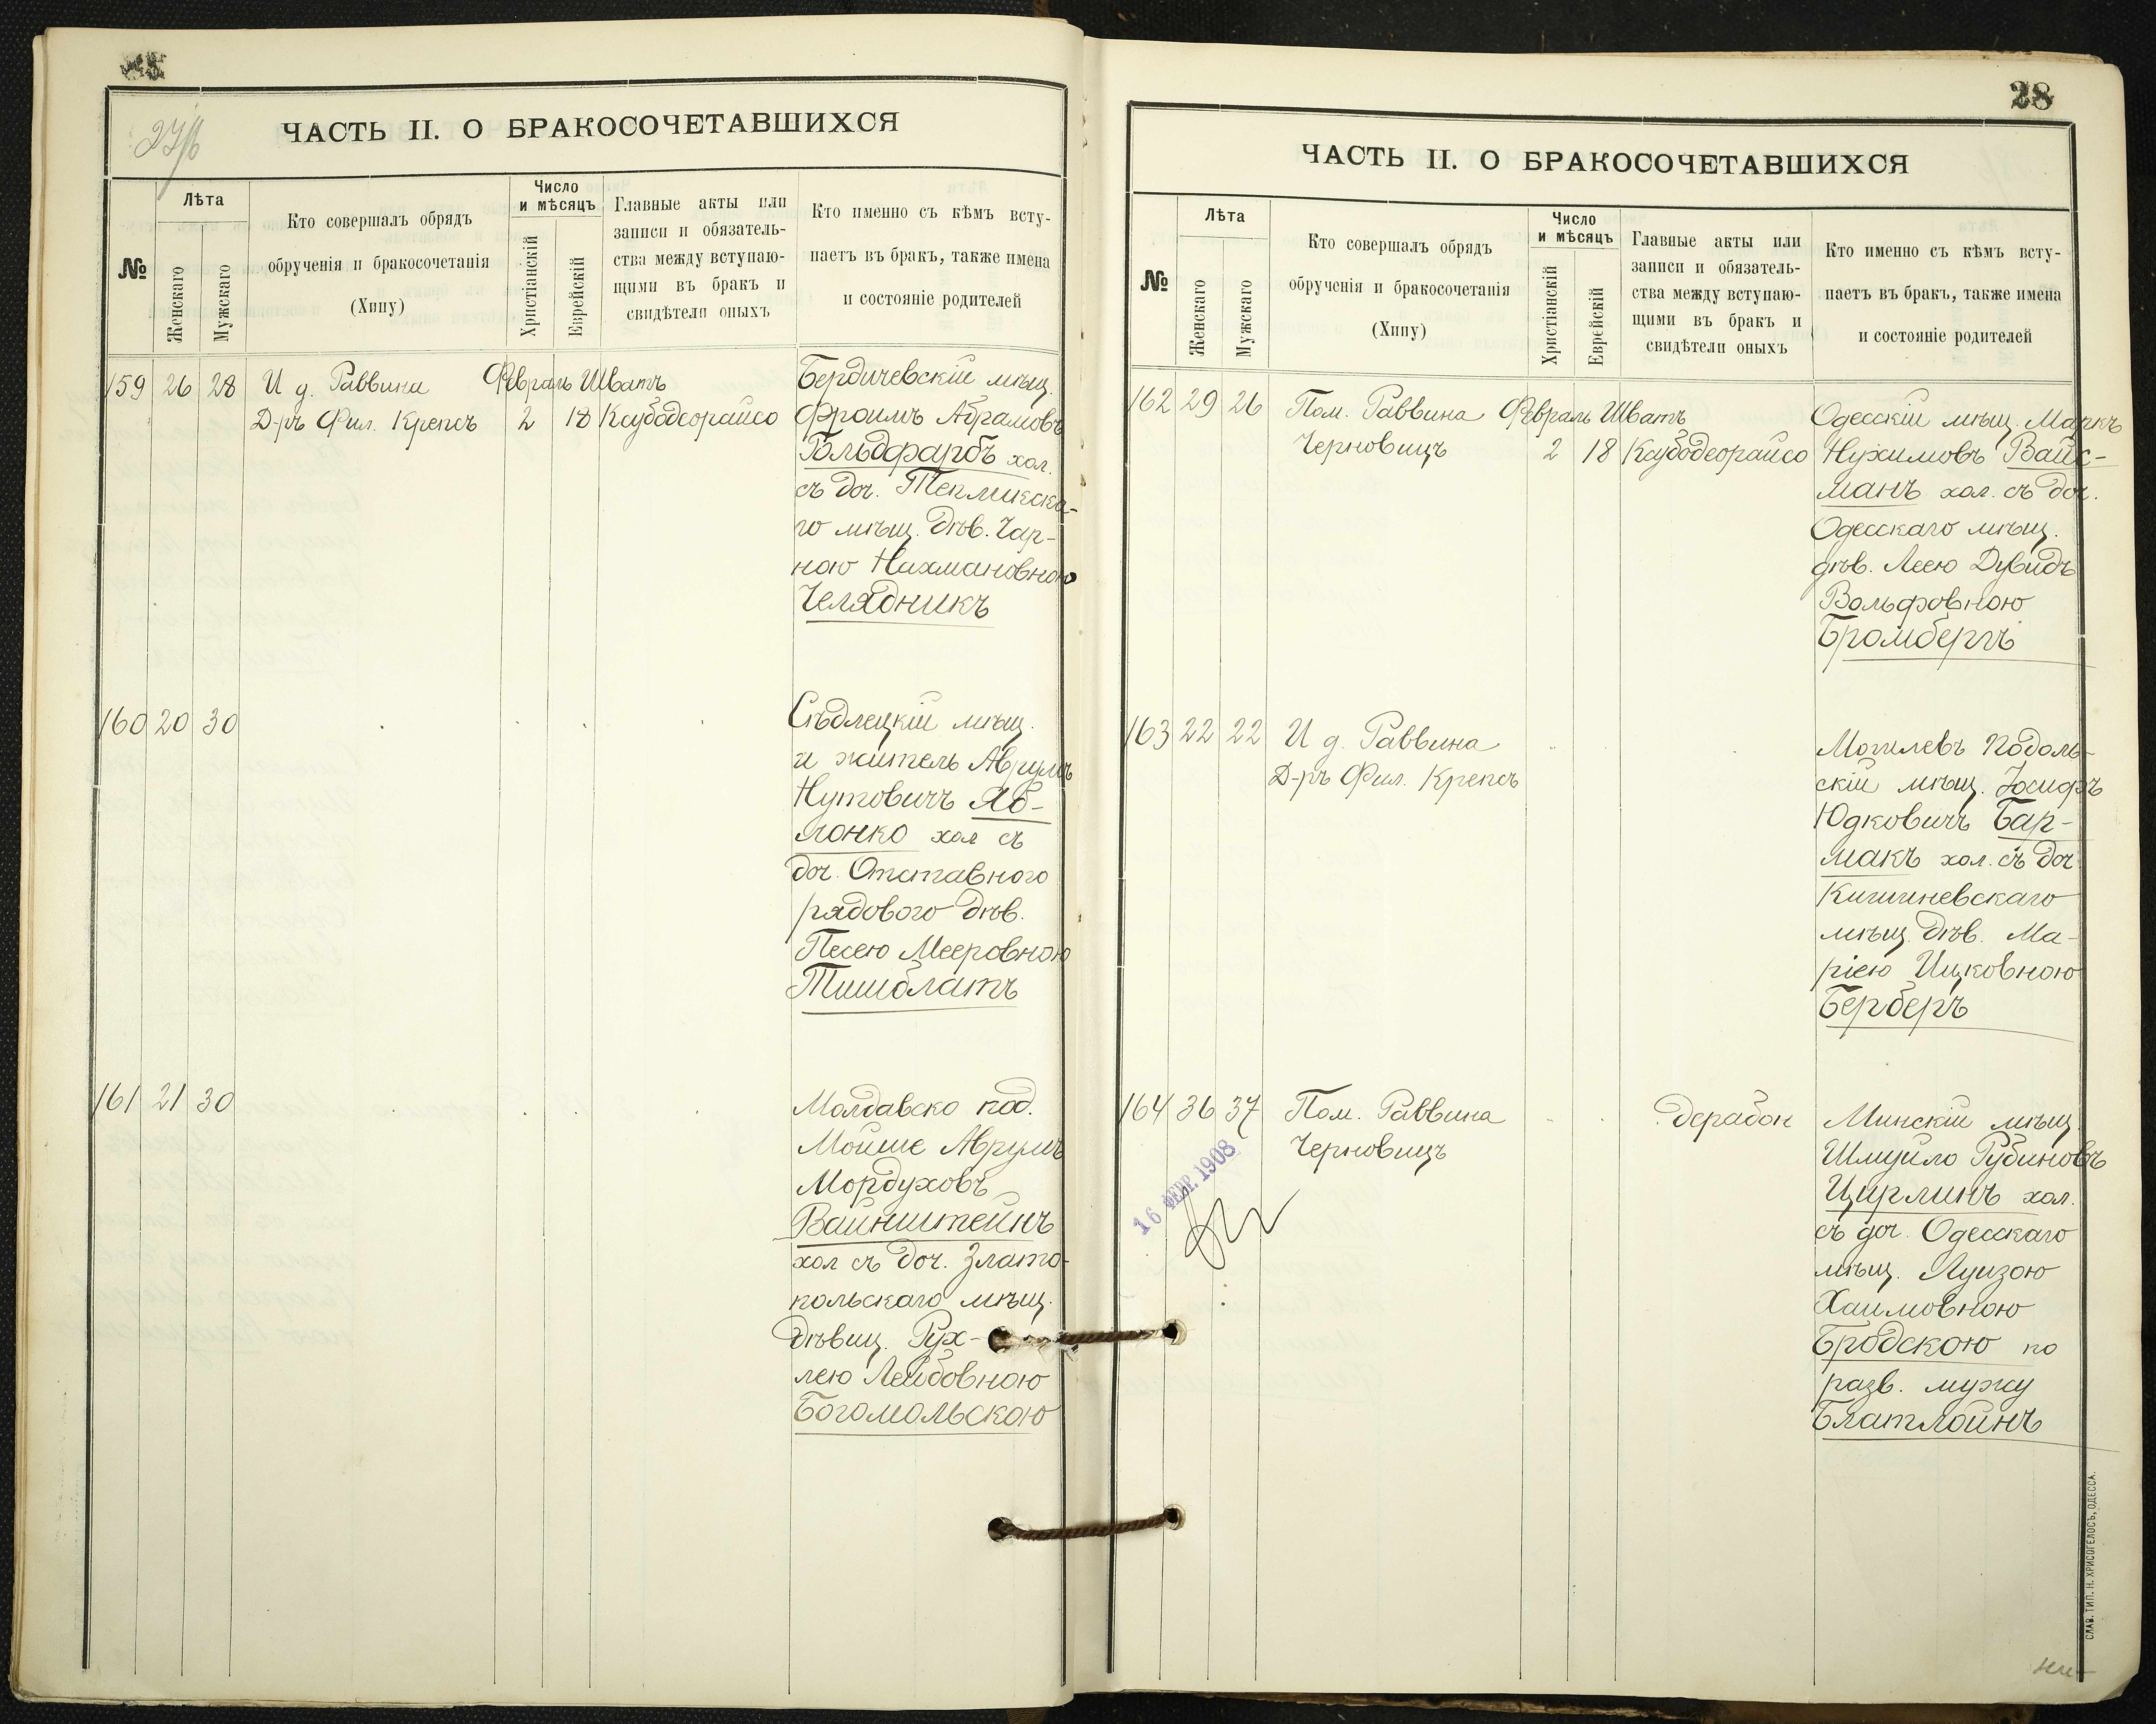 27/б
ЧАСТЬ II. О БРАКОСОЧЕТАВШИХСЯ
№
Лѣта
Женскаго
Мужскаго
Кто совершалъ обрядъ
обрученія и бракосочетанія
(Хипу)
Число
и мѣсяцъ
Христіанскій
Еврейскій
Главные акты или
записи и обязатель-
ства между вступаю-
щими въ бракъ и
свидѣтели оныхъ
Кто именно съ кѣмъ всту-
паетъ въ бракъ, также имена
и состояніе родителей
159 26 28 И д. Раввина
Д-ръ Фил. Крепсъ
Февраль Шватъ
2 18 Каубодеорайсо
Бердичевскій мѣщ.
Фроимъ Абрамовъ
Гольдфарбъ хол.
съ доч. Тепликска-
го мѣщ. дѣв. Чар-
ною Нахмановною
Челядникъ
160 20 30
Сѣдлецкій мѣщ.
и житель Аврумъ
Нутовичъ Яб-
лонко хол съ
доч. Отставного
рядового дѣв.
Песею Мееровною
Тишблатъ
161 21 30
Молдавско под.
Мойше Аврумъ
Мордуховъ
Вайнштейнъ
хол съ доч. Злато-
польскаго мѣщ.
дѣвиц. Рух-
лею Лейбовною
Богомольскою
28
ЧАСТЬ II. О БРАКОСОЧЕТАВШИХСЯ
№
Лѣта
Женскаго
Мужскаго
Кто совершалъ обрядъ
обрученія и бракосочетанія
(Хипу)
Число
и мѣсяцъ
Христіанскій
Еврейскій
Главные акты или
записи и обязатель-
ства между вступаю-
щими въ бракъ и
свидѣтели оныхъ
Кто именно съ кѣмъ всту-
паетъ въ бракъ, также имена
и состояніе родителей
162 29 26 Пом. Раввина
Черновицъ
Февраль Шватъ
2 18 Каубодеорайсо
Одесскій мѣщ. Маркъ
Нухимовъ Вайс-
манъ хол. съ доч.
Одесскаго мѣщ.
дѣв. Леею Дувидъ
Вольфовною
Бромбергъ
163 22 22 И д. Раввина
Д-ръ Фил. Крепсъ
Могилевъ Подоль-
скій мѣщ. Іосифъ
Юдковичъ Бар-
макъ хол. съ доч
Кишиневскаго
мѣщ. дѣв. Ма-
ріею Ицковною
Герберъ
164 36 37 Пом. Раввина
Черновицъ
Дерабон
16 ФЕВР. 1908
Минскій мѣщ
Шмуйло Рубиновъ
Цирлинъ хол.
съ доч. Одесскаго
мѣщ. Луизою
Хаимовною
Бродскою по
разв. мужу
Блатлойнъ
СЛАВ. ТИП. Н. ХРИСОГЕЛОСЪ, ОДЕССА.